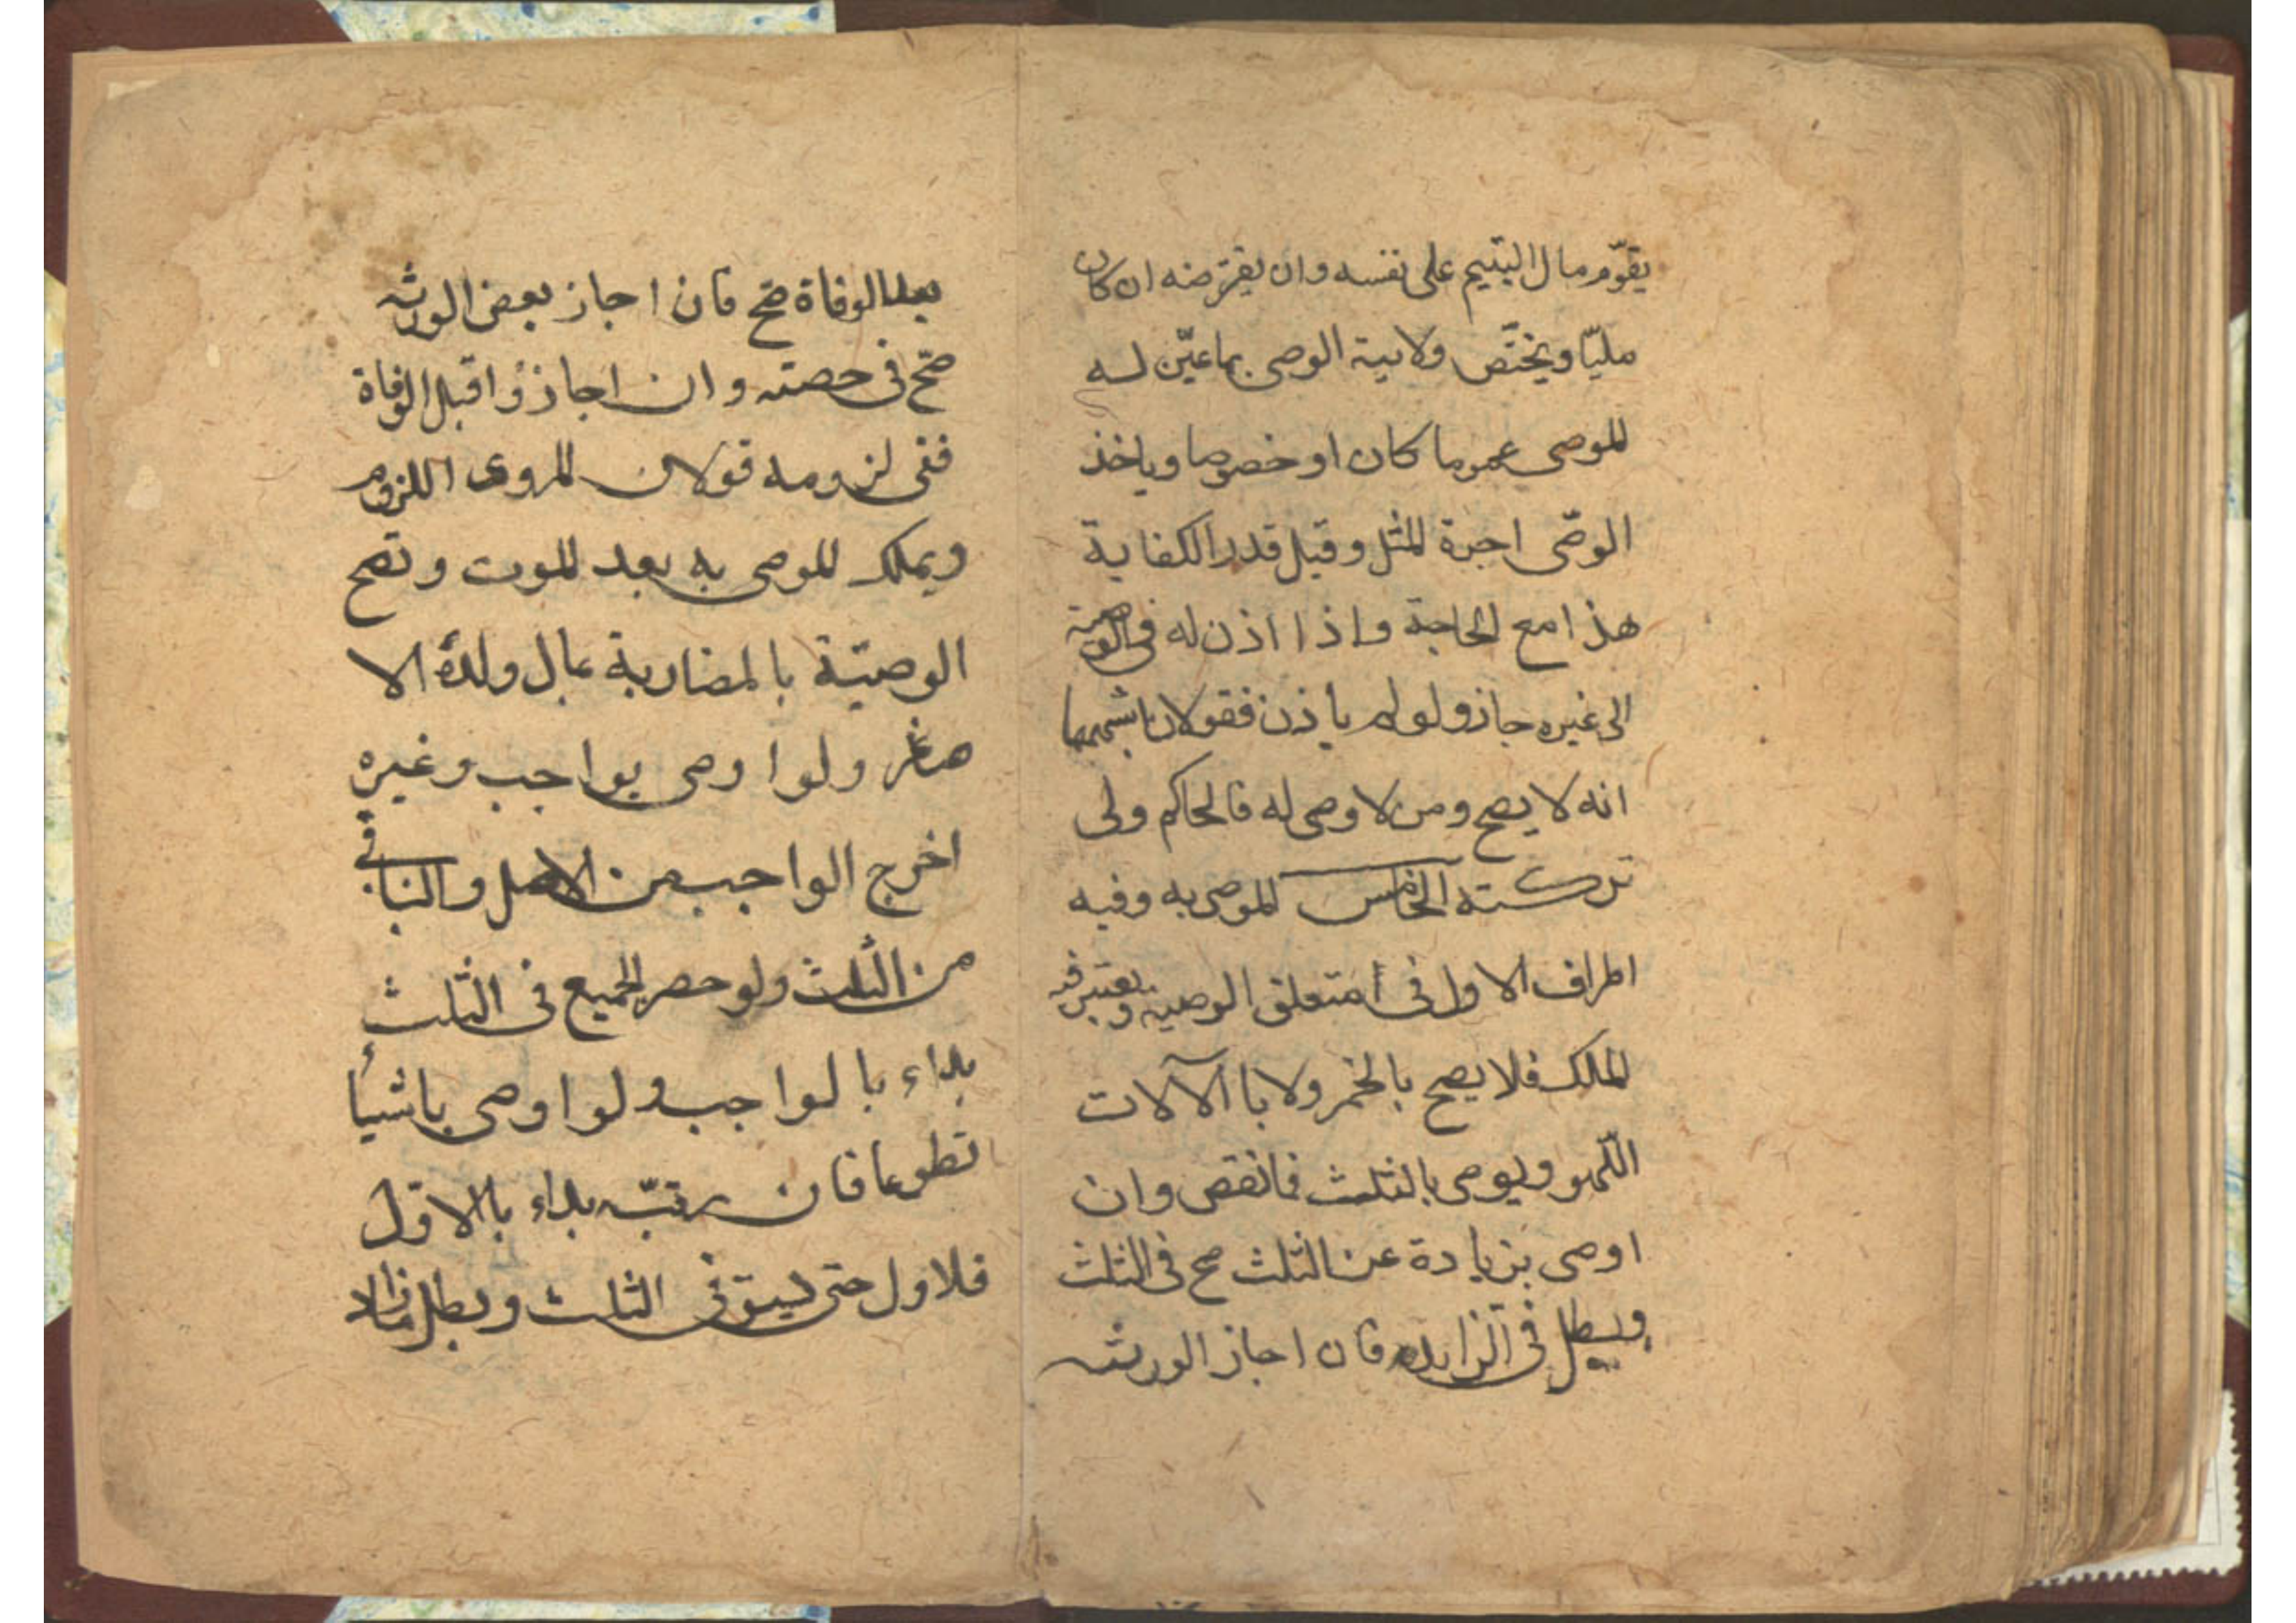 يقوّم مال اليتيم على نفسه وان يقترضه ان كان
مليّا ويختّص ولاية الوصى بما عيّن له
الموصى عموما كان او خصوصا وياخذ
الوصّى اجرة المثل وقيل قدر الكفاية
هذا مع الحاجة واذا اذن له فى الوصية
الى غيره جاز ولو لم ياذن فقولان اشبههما
انه لا يصح ومن لا وصى له فالحاكم ولى
تركته الخامس الموصى به وفيه
اطراف الاول فى متعلق الوصية ويعتبر فيه
الملك فلا يصح بالخمر ولا باآلالات
اللّهو ويوصى بالثلث فانقص وان
اوصى بزيادة عن الثلث صح فى الثلث
وبطل فى الزايد فان اجاز الورثه
بعد الوفاة صّح فان اجاز بعض الورثه
صّح فى حصته وان اجازوا قبل الوفاة
ففى لزومه قولان المروى اللزوم
ويملك الموصى به بعد الموت وتصح
الوصيّة بالمضاربة بمال ولده الا
صاغر ولو اوصى بواجب وغيره
اخرج الواجب من الاصل والباقى
من الثلث ولو حصر الجميع فى الثلث
بداء بالواجب ولو اوصى باشيأ
تطوعا فان رتبّ بداء بالاوّل
فلاول حتى يستوفى الثلث وبطل ما زاد